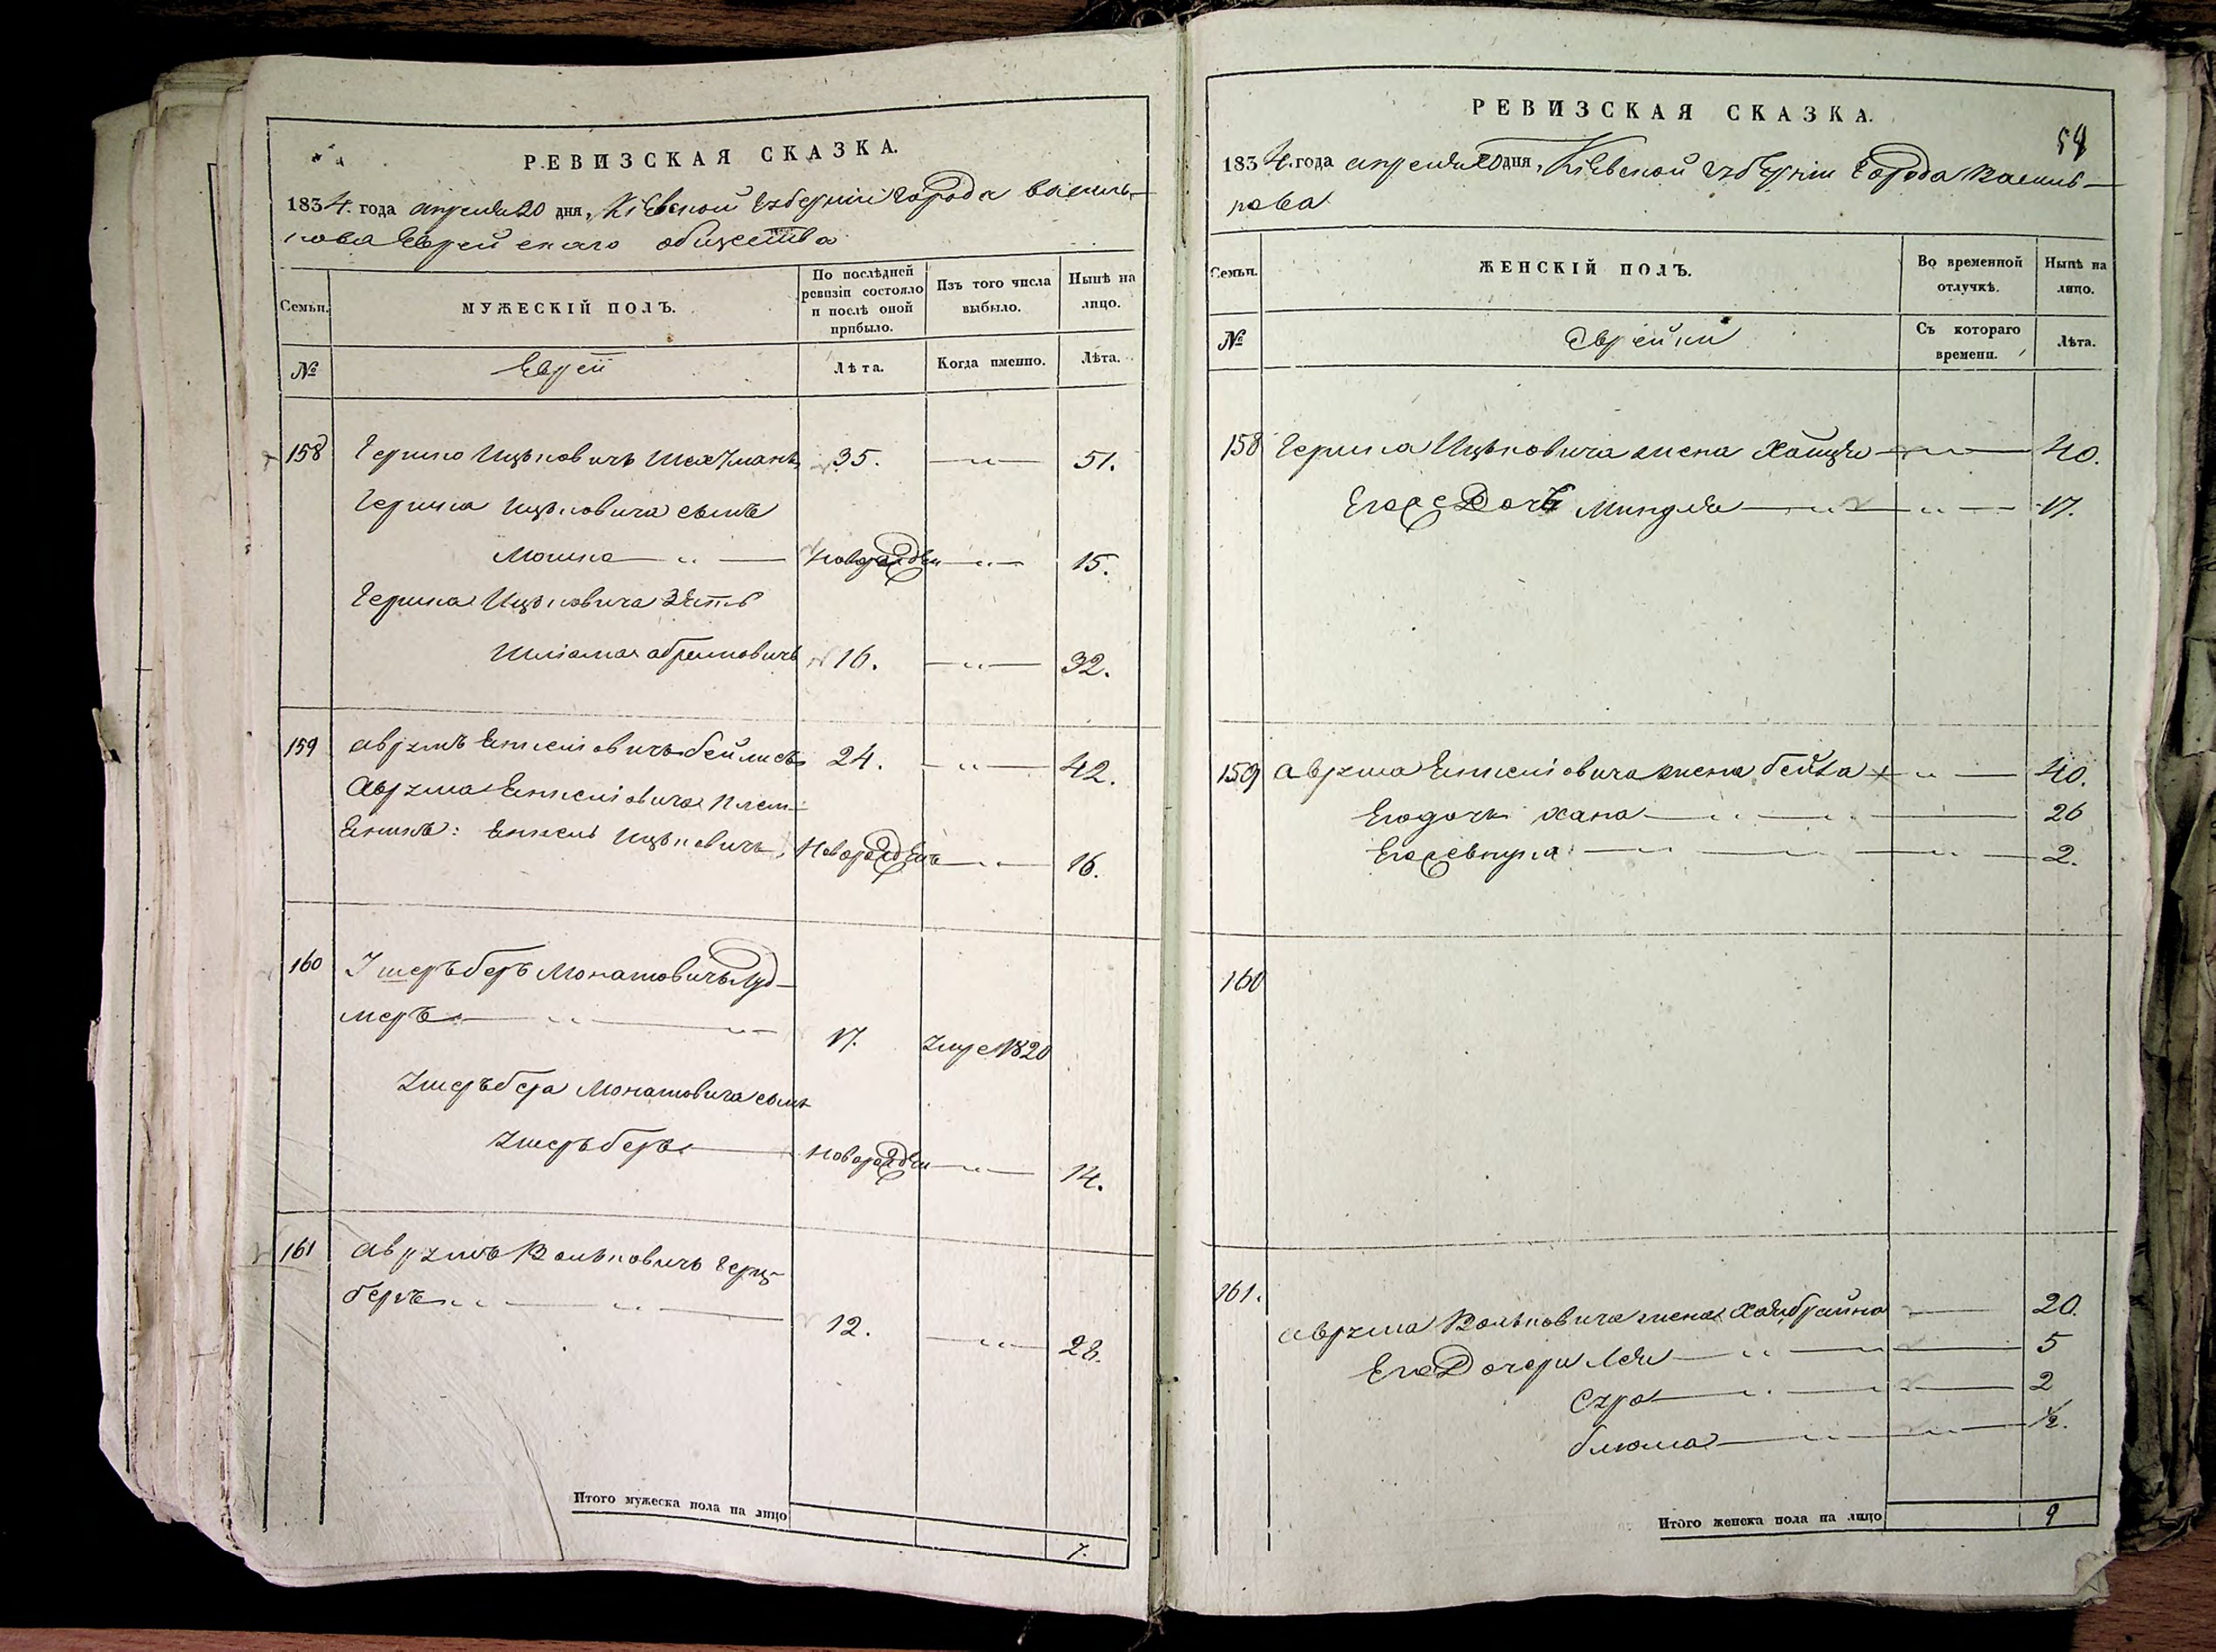 РЕВИЗСКАЯ СКАЗКА.
1834. года апреля 20 дня, Кіевской губерніи города Василь-
кова Еврейскаго общества
Семьи.
МУЖЕСКІЙ ПОЛЪ.
По послѣдней
ревизіи состояло
и послѣ оной
прибыло.
Изъ того числа
выбыло.
Нынѣ на
лицо.
№
Евреи
Лѣта.
Когда именно.
Лѣта.
158 Гершко Ицьковичъ 35. 51.
Гершка Ицьковича сынъ
Мошко Новорожден 15.
Гершка Ицьковича зять
абрамовичъ 16. 32.
159 аврумъ Енкеліовичъ бейлисъ 24. 42.
Аврума Енкеліовича плем-
еникъ: Енкель Ицьковичъ Новорожденъ 16.
160 Ушеръ беръ Монашовичъ
меръ 17. Умре 1820
Ушеръ бера Монашовича сынъ
Ушеръ беръ Новорожден 14.
161 аврумъ Вольковичъ Герц-
бергъ 12. 28.
Итого мужеска пола на лицо 7.
РЕВИЗСКАЯ СКАЗКА.
1834. года апреля 20 дня, Кіевской губерніи города Василь-
кова
Семьи.
ЖЕНСКІЙ ПОЛЪ.
Во временной
отлучкѣ.
Нынѣ на
лицо.
№
Еврейки
Съ котораго
времени.
Лѣта.
158 Гершка Ицьковича жена Хайця 40.
Его дочь Миндля 17.
159 аврума Енкеліовича жена бейла 40.
Его дочь хана 26
Его внука 2.
160
161. аврума Вольковича жена Хаябрайна 20.
Его дочери Лея 5
Сура 2
блюма 1/2.
Итого женска пола на лицо 9